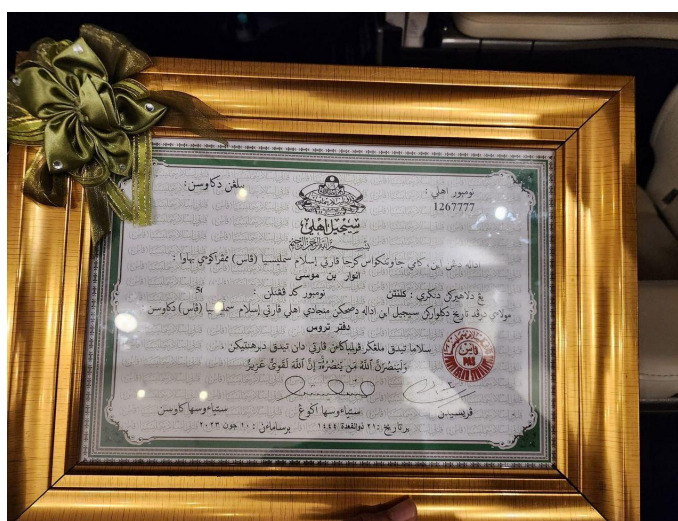 نومبور اهلي :
1267777
سلڠن دکاوسن:
سيجيل اهلي
بسم الله الرحمن الرحيم
اداله دڠن اين، کامي جاوتنکواس کرجا ڤارتي إسلام سمليسيا (ڤاس) مڠراکوءي بهاوا :
انوار بن موسى
يڠ دلاهيرکن دنݢري : کلنتن نومبور کد ڤڠنلن :
مولاءي درڤد تاريخ دکلوارکن سيجيل اين اداله دصحکن منجادي اهلي ڤارتي إسلام سمليسيا (ڤاس) دکاوسن :
دفتر تروس
سلاما تيدق ملڠݢر ڤرلمباݢاءن ڤارتي دان تيدق دبرهنتيکن .
وَلَيَنصُرَنَّ اللَّهُ مَن يَنصُرُهُۥٓ إِنَّ اللَّهَ لَقَوِىٌّ عَزِيزٌ
PAS
ڤريسيدن
ستياءوسها اݢوڠ
ستياءوسها کاوسن
برتاريخ : ٢١ ذوالقعدة ١٤٤٤ برساماءن : ١٠ جون ٢٠٢٣